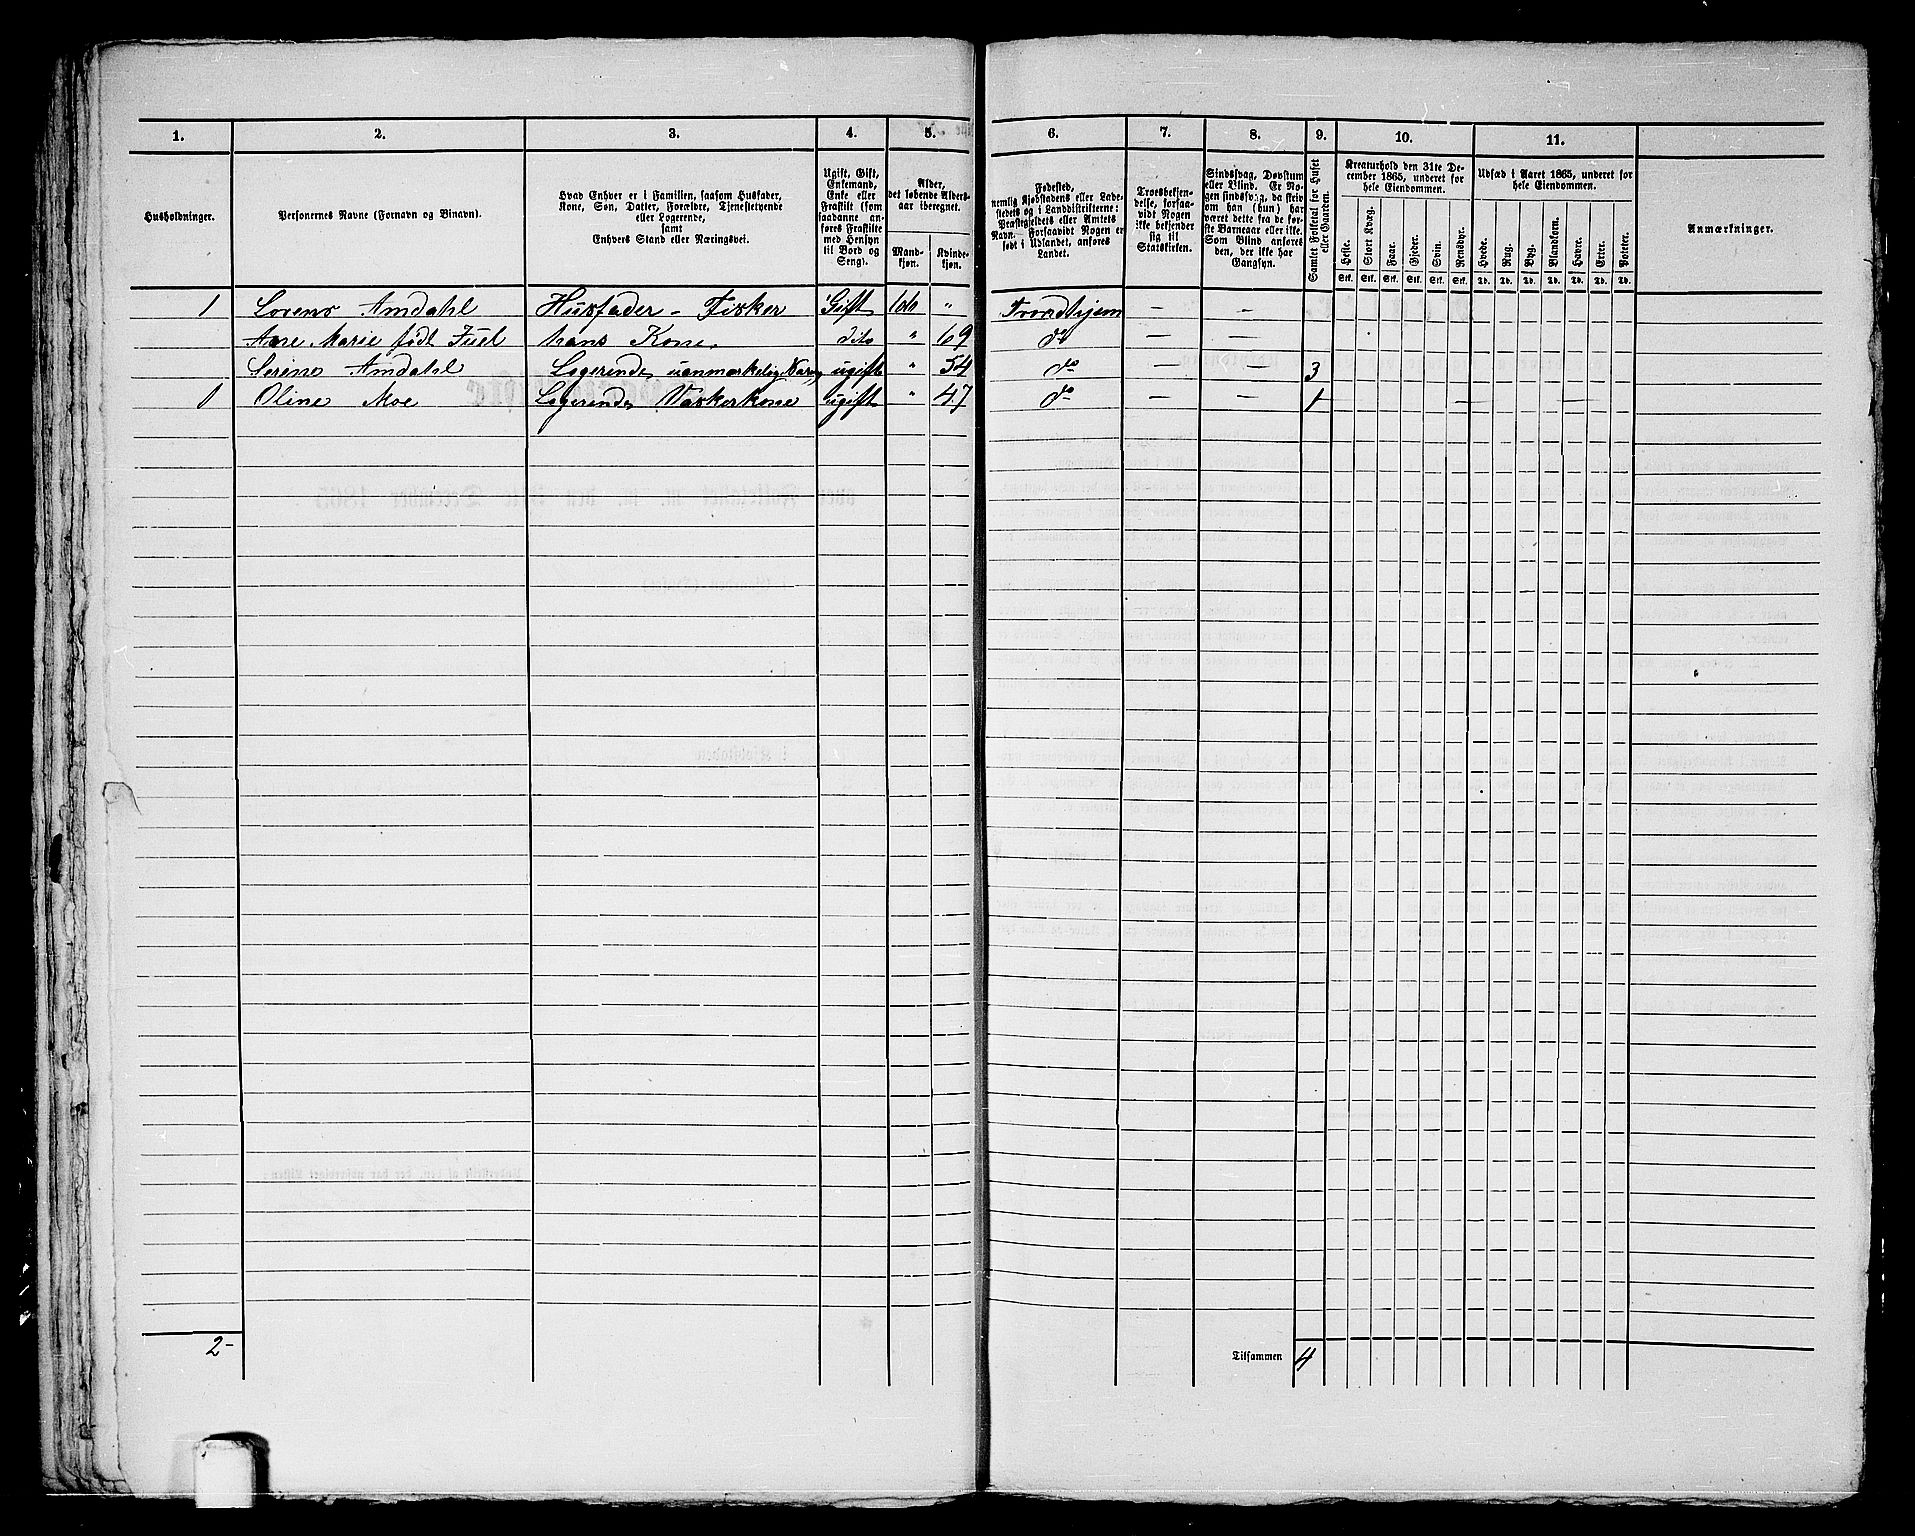 1. 2. 3. 4. 5. 6. 7. 8. 9. 10. 11.
Husholdninger.
Personernes Navne (Fornavn og Binavn).
Hvad Enhver er i Familien, saasom Husfader,
Kone, Søn, Datter, Forældre, Tjenestetyende
eller Logerende,
samt
Enhvers Stand eller Næringsvei.
Ugift, Gift,
Enkemand,
Enke eller
Fraskilt (som
saadanne an-
føres Fraskilte
med Hensyn
til Bord og
Seng).
Alder,
det løbende Alders-
aar iberegnet.
Mand-
kjøn.
Kvinde-
kjøn.
Fødested,
nemlig Kjøbstadens eller Lade-
stedets og i Landdistrikterne:
Præstegjeldets eller Amtets
Navn. Forsaavidt Nogen er
født i Udlandet, anføres
Landet.
Troesbekjen-
delse, forsaa-
vidt Nogen
ikke bekjender
sig til
Statskirken.
Sindssvag, Døvstum
eller Blind. Er No-
gen sindssvag, da skriv
om han (hun) har
været dette fra de før-
ste Barneaar eller ikke.
Som Blind anføres
den, der ikke har
Gangsyn.
Samlet Folketal for Huset
eller Gaarden.
Kreaturhold den 31te De-
cember 1865, underet for
hele Eiendommen.
Heste. Stort Kvæg. Faar. Gjeder. Svin. Rensdyr.
Stk. Stk. Stk. Stk. Stk. Stk.
Udsæd i Aaret 1865, underet for
hele Eiendommen.
Hvede. Rug. Byg. Blandkorn. Havre. Erter. Poteter.
Td. Td. Td. Td. Td. Td. Td.
Anmærkninger.
1 Lorens Amdahl Husfader - Fisker Gift 66 " Trondhjem — —
Ane Marie født Juel hans Kone. dito " 69 do — —
Serine Amdahl Logerende ugift " 54 do — — 3
1 Oline Moe Logerende Vaskerkone ugift " 47 do — — 1 — —
2-
Tilsammen 4